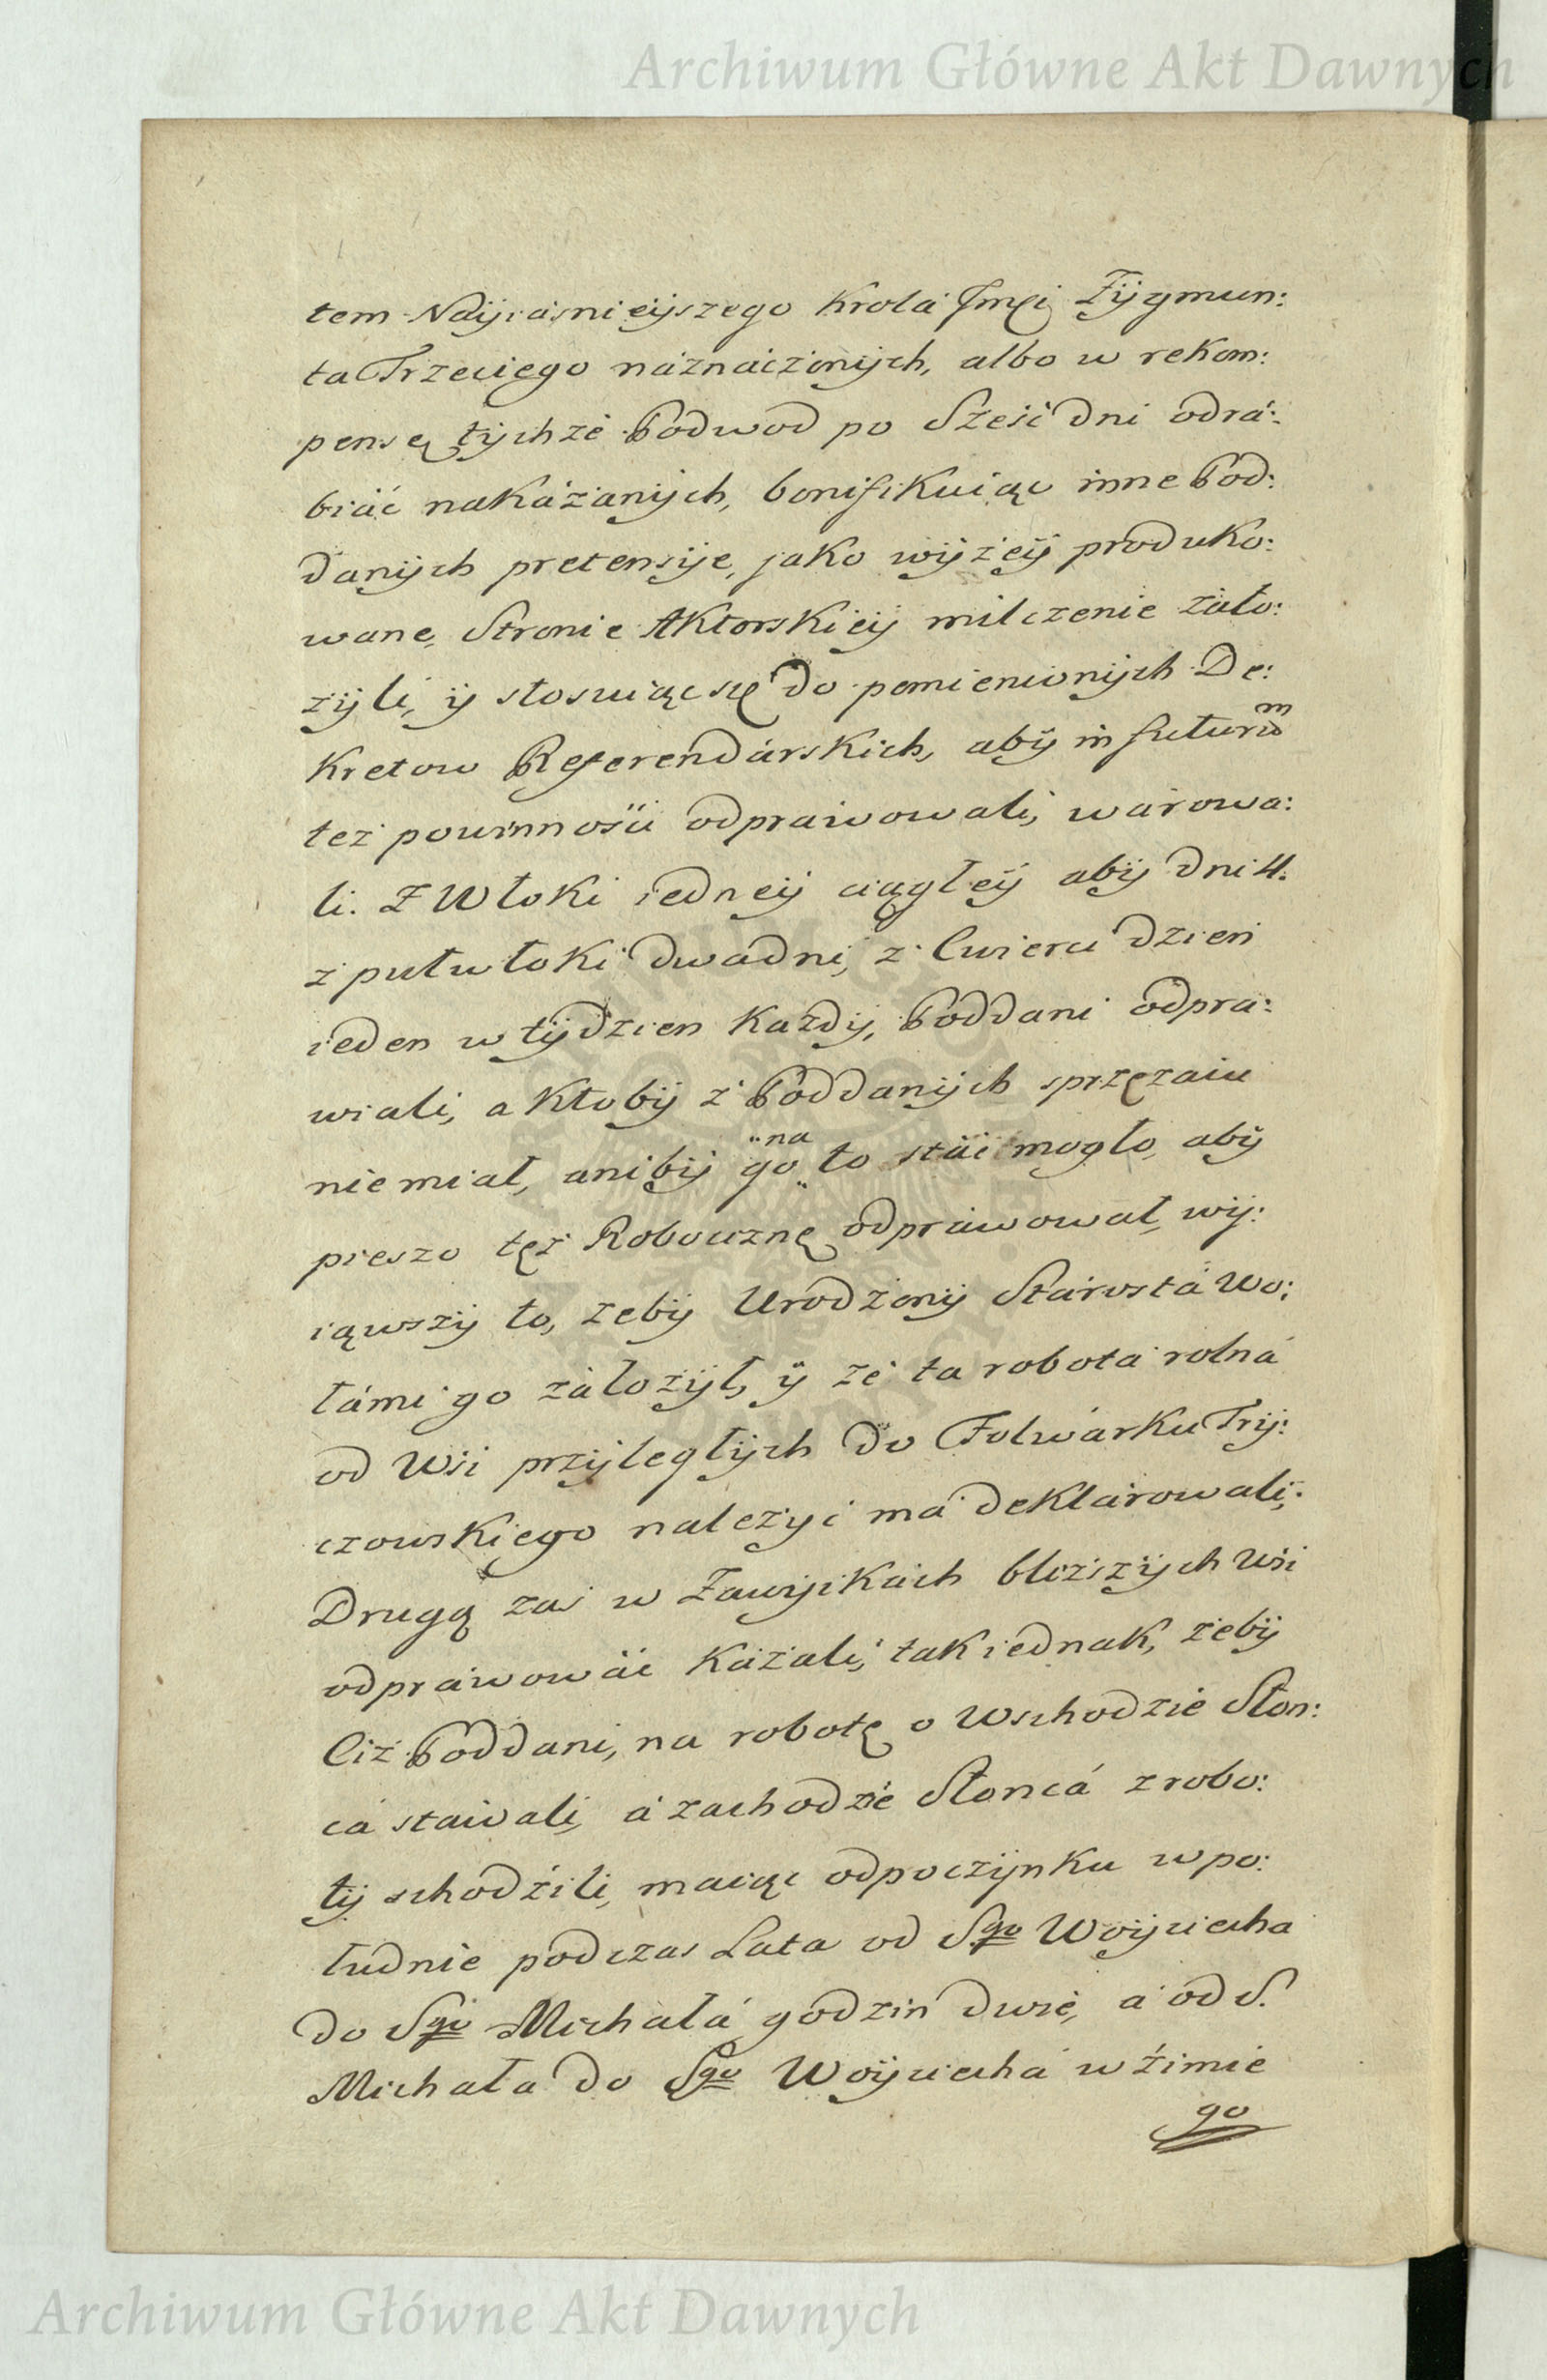 Archiwum Główne Akt Dawnych
tem Nayiaśnieyszego Krola Jmci Zygmun:
ta Trzeciego naznaczonych, albo w rekom:
pensę tychże Podwod po Sześć dni odra:
biać nakazanych, bonifikuiąc inne Pod:
danych pretensye, jako wyżey produko:
wane, Stronie Aktorskiey milczenie zało:
zyli, y stosuiąc się do pomienionych De:
kretow Referendarskich, aby in futurum
też powinności odprawowali, warowa:
li. Z Włoki iedney ciągłey aby dni 4.
z pułwłoki dwa dni, z Cwierci dzień
ieden w tydzien Każdy, Poddani odpra:
wiali, a Ktoby z Poddanych sprzęzaiu
niemiał, aniby go na to stać mogło, aby
pieszo tęż Robociznę odprawował, wy:
iąwszy to, zeby Urodzony Starosta Wo:
łámi go założył, y że ta robota rolna
od Wsi przyległych do Folwarku Try:
czowskiego nalezyć ma deklarowali;
Drugą zaś w Zawykach bliższych Wsi
odprawować Kazali, tak iednak, żeby
Ciż Poddani, na robotę o Wschodzie Słon:
ca stawali, a zachodzie Słonca z robo:
ty schodzili, maiąc odpoczynku w po:
łudnie podczas Lata od Sgo Woyciecha
do Sgo Michała godzin dwie, a od S.
Michała do Sgo Woyciecha w zimie
go
Archiwum Główne Akt Dawnych